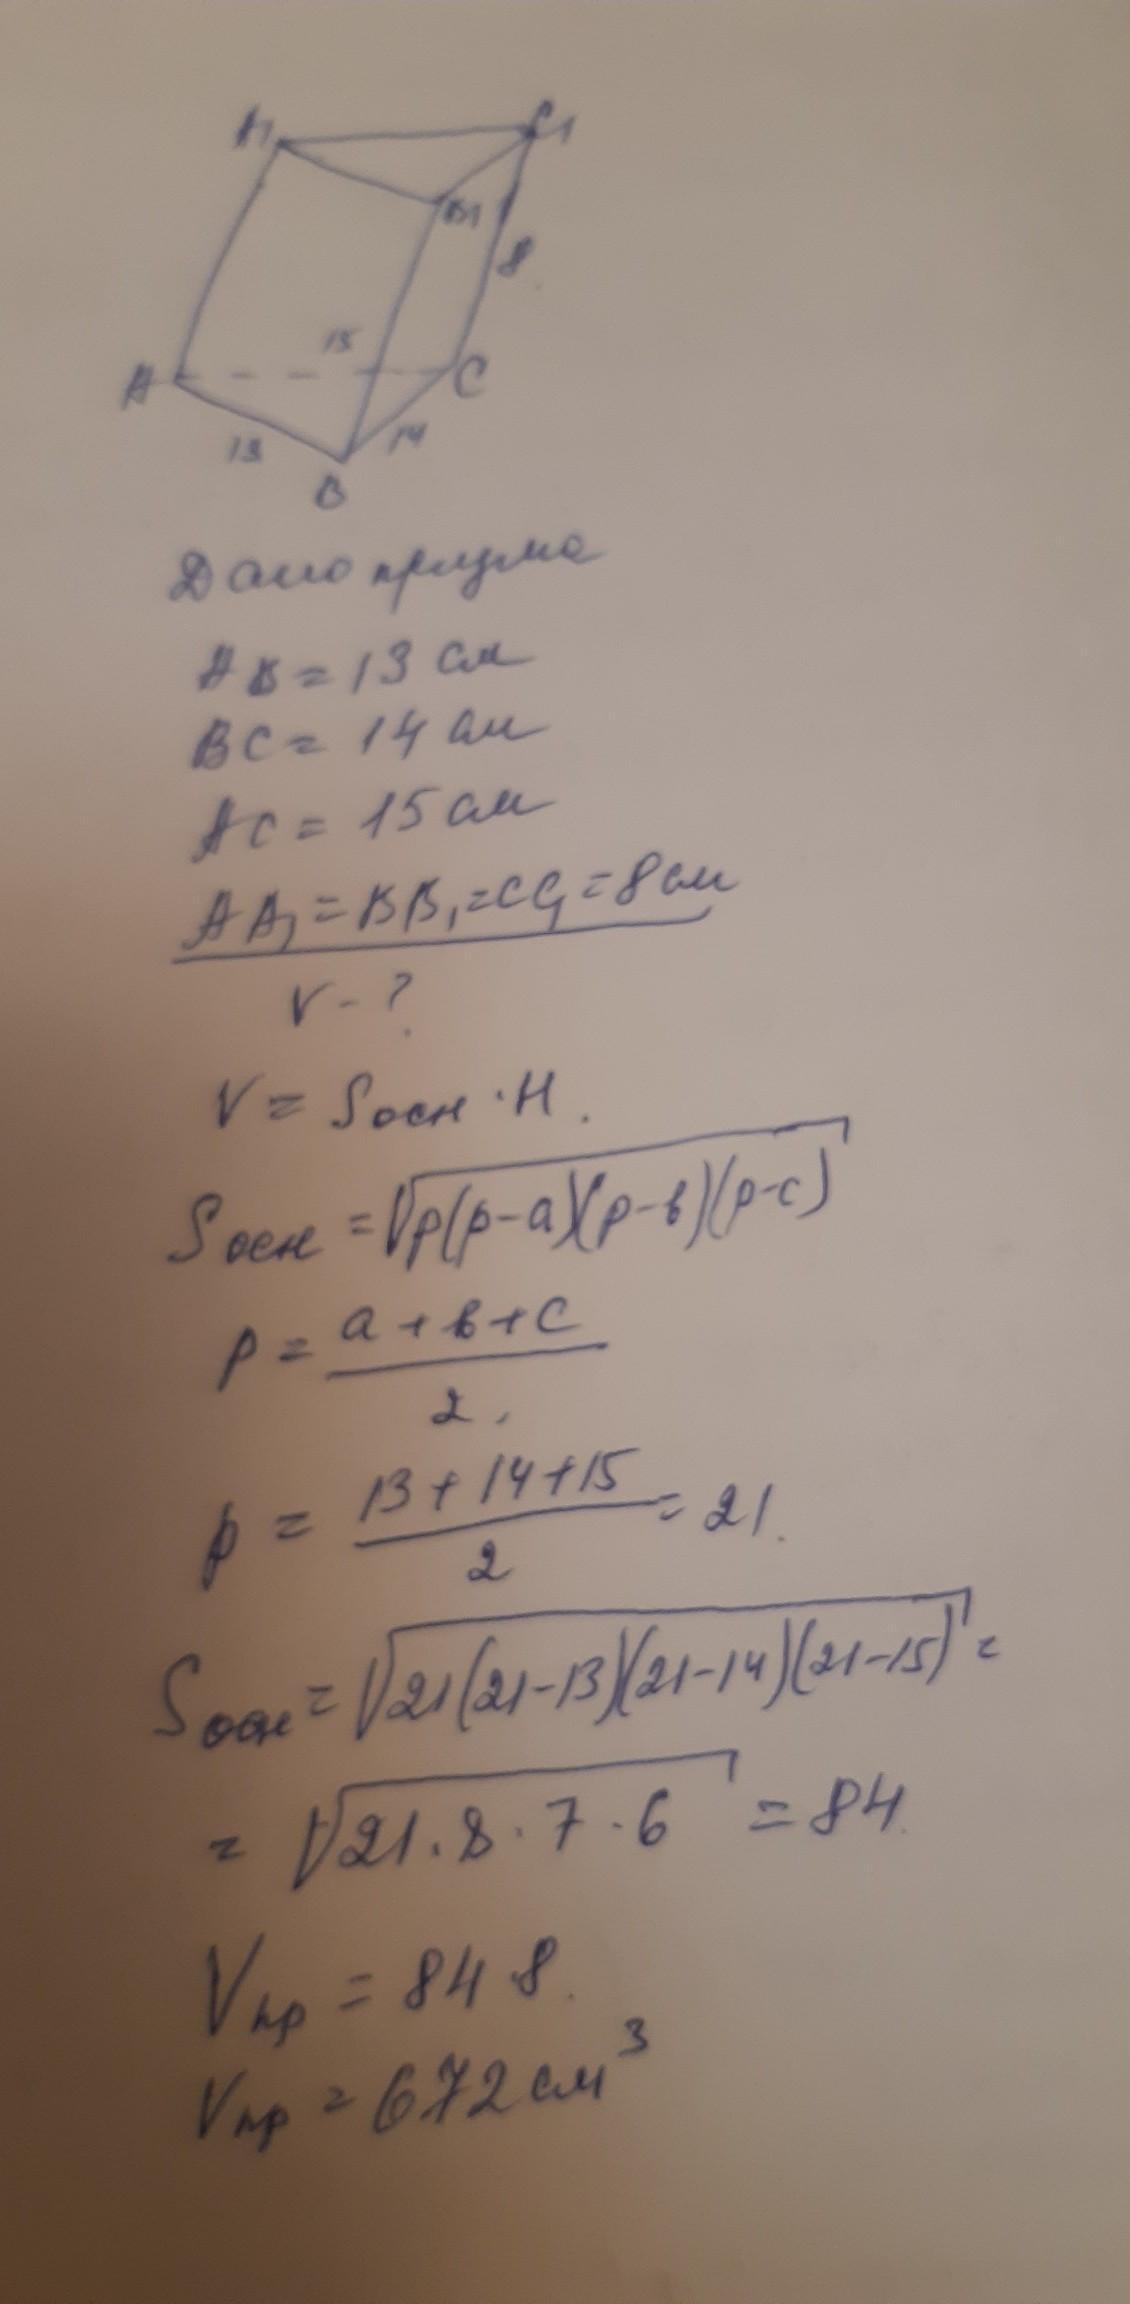 A1 C1
B1
8
15
A C
13 14
B
Дано призма
AB = 13 см
BC = 14 см
AC = 15 см
AA₁ = BB₁ = CC₁ = 8 см
V - ?
V = Sосн · H.
Sосн = √p(p-a)(p-b)(p-c)
p = a + b + c
2.
p = 13 + 14 + 15 = 21.
2
Sосн = √21(21-13)(21-14)(21-15) =
= √21 · 8 · 7 · 6 = 84.
Vпр = 84 8.
Vпр = 672 см³